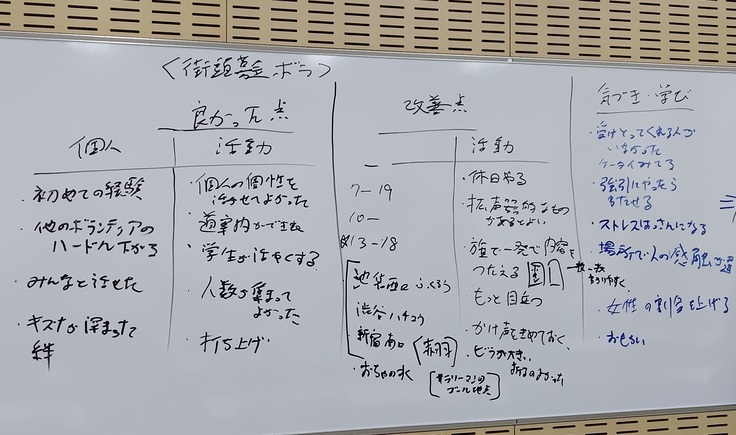 〈街頭募金ボラ〉
良かった点
個人
・初めての経験
・他のボランティアの
ハードル下がる
・みんなと話せた
・キズナが深まった
絆
活動
・個人の個性を
活かせてよかった
・道案内ができた
・学生が活やくする
・人数が集まって
よかった
・打ち上げ
改善点
7-19
10-
13-18
池袋西口 ふくろう
渋谷 ハチ公
新宿 南口
〈赤羽〉
・おちゃの水
[サラリーマンの
ゴール地点]
活動
・休日やる
・拡声器的なもの
があるとよい
・旗で一発で内容を
つたえる
・もっと目立つ
・かけ声をきめておく
気づき・学び
・受けとってくれる人が
いなかった
ケータイみてる
・強引にやったら
・ストレスはっさんになる
・場所で人の感触が違
・女性の割合を上げる
・おもしろい